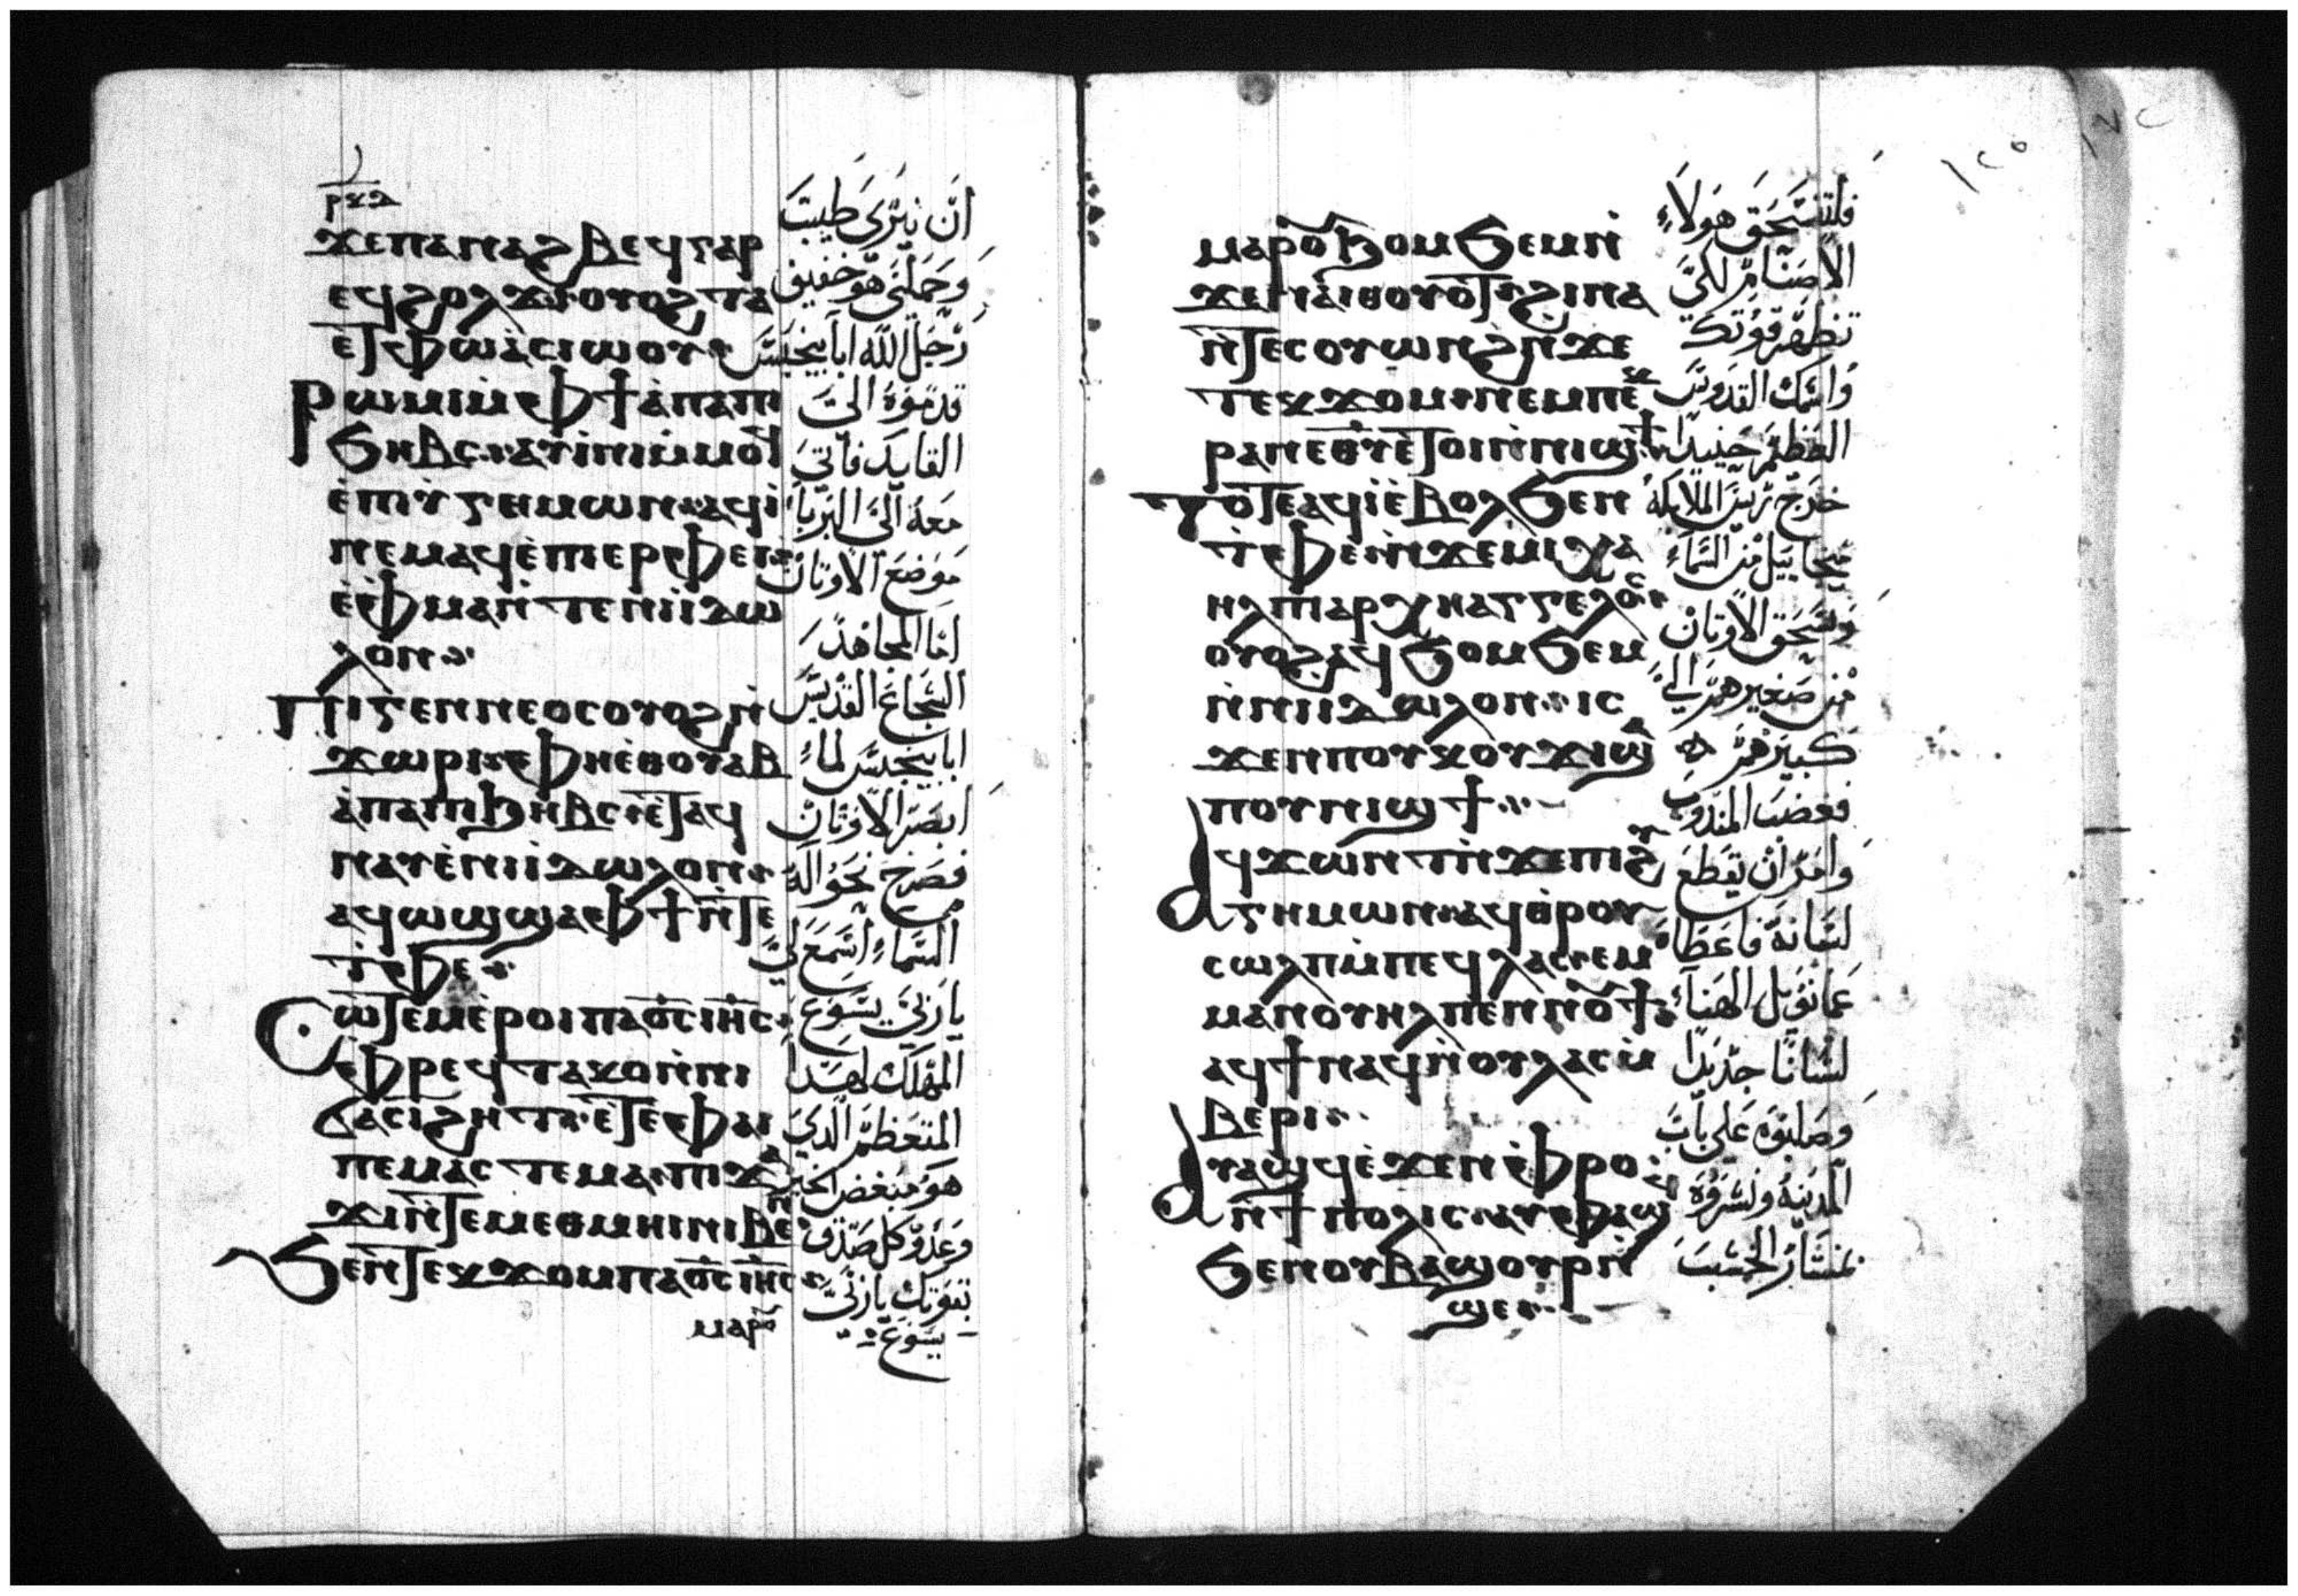 ⲣⲕⲇ
ϫⲉⲡⲁⲛⲁϩⲃⲉϥⲅⲁⲣ
ⲉϥϩⲟⲗϫ ⲟⲩⲟϩ ⲧⲁ
ⲉⲧⲫⲱ ⲁⲥⲓⲱⲟⲩ
ⲣⲱⲙⲓ ⲙⲫϯ ⲁⲡⲁ ⲡⲓ
ϧⲏⲃⲥ ⲁⲩⲓⲛⲓ ⲙⲙⲟϥ
ⲉⲡⲓϩⲩⲅⲉⲙⲱⲛ ⲁϥⲓ
ⲛⲉⲙⲁϥ ⲉⲡⲓⲉⲣⲫⲉⲓ
ⲉⲫⲙⲁ ⲛⲧⲉ ⲛⲓⲓⲇⲱ
ⲗⲟⲛ
ⲡⲓⲅⲉⲛⲛⲉⲟⲥ ⲟⲩⲟϩ ⲛ
ϫⲱⲣⲓ ⲫⲏⲉⲑⲟⲩⲁⲃ
ⲁⲡⲁ ⲡⲓϧⲏⲃⲥ ⲉⲧⲁϥ
ⲛⲁⲩ ⲉⲛⲓⲓⲇⲱⲗⲟⲛ
ⲁϥⲱϣ ϣⲁ ⲫϯ ⲛⲧⲉ
ⲧⲫⲉ
ⲥⲱⲧⲉⲙ ⲉⲣⲟⲓ ⲡⲁⲟⲥ ⲓⲏⲥ
ⲫⲣⲉϥⲧⲁⲕⲟ ⲛⲛⲓ
ϭⲁⲥⲓϩⲏⲧ ⲉⲧⲉ ⲫⲁⲓ
ⲡⲉ ⲙⲁⲥⲧⲉ ⲙⲁ
ϫⲓ ⲛⲧⲉ ⲙⲉⲑⲙⲏⲓ ⲛⲓⲃⲉⲛ
ϧⲉⲛ ⲧⲉⲕϫⲟⲙ ⲡⲁⲟⲥ ⲓⲏⲥ
ⲙⲁⲣⲟ
ان نيري طيبت
وحملي هو خفيف
رجل الله ابا بيخبس
قدموه الي
القايد فاتي
معه الي البربا
موضع الاوتان
اما المجاهد
الشجاع القديس
ابا بيخبس لما
ابصر الاوتان
فصرخ نحو اله
السماء اسمع لي
يا ربي يسوع
المهلك لهدا
المتعظم الدي
هو مبغض الخير
وعدو كل صدق
بقوتك يا ربي
يسوع
١٢٥
ⲙⲁⲣⲟⲩϧⲟⲙϧⲉⲙ ⲛ
ϫⲉ ⲛⲁⲓⲑⲟⲩⲱⲧ ϩⲓⲛⲁ
ⲛⲧⲉⲥⲟⲩⲱⲛϩ ⲛϫⲉ
ⲧⲉⲕϫⲟⲙ ⲛⲉⲙ ⲡⲉⲕ
ⲣⲁⲛ ⲉⲑⲩ ⲉⲧⲟⲓ ⲛⲛⲓϣϯ
ⲧⲟⲧⲉ ⲁϥⲓ ⲉⲃⲟⲗ ϧⲉⲛ
ⲧⲫⲉ ⲛϫⲉ ⲙⲓⲭⲁ
ⲏⲗ ⲡⲓⲁⲣⲭⲏⲁⲅⲅⲉⲗⲟⲥ
ⲟⲩⲟϩ ⲁϥϧⲟⲙϧⲉⲙ
ⲛⲛⲓⲓⲇⲱⲗⲟⲛ ⲓⲥ
ϫⲉⲛ ⲡⲟⲩⲕⲟⲩϫⲓ ϣⲁ
ⲡⲟⲩⲛⲓϣϯ
ⲁϥϫⲱⲛⲧ ⲛϫⲉ ⲡⲓϩⲩ
ⲅⲏⲙⲱⲛ ⲁϥⲑⲣⲟⲩ
ⲥⲱⲗⲡ ⲙⲡⲉϥⲗⲁⲥ ⲉⲙ
ⲙⲁⲛⲟⲩⲏⲗ ⲡⲉⲛⲛⲟⲩϯ
ⲁϥϯ ⲛⲁϥ ⲛⲟⲩⲗⲁⲥ ⲙ
ⲃⲉⲣⲓ
ⲁⲩⲁϣϥ ⲉϫⲉⲛ ⲫⲣⲟ
ⲛϯⲡⲟⲗⲓⲥ ⲁⲩⲫⲁϣϥ
ϧⲉⲛ ⲟⲩⲃⲁϣⲟⲩⲣ ⲛ
ϣⲉ
فلتنسحق هولاء
الاصنام لكي
تظهر قوتك
واسمك القدوس
العظيم حينيدا
خرج ريس الملايكة
ميخاييل من السماء
وسحق الاوتان
من صغيرهم الي
كبيرهم
فغضب المندوب
وامر ان يقطع
لسانه فاعطا
عمانويل الهنا
لسانا جديدا
وصلبوه علي باب
المدينة ونشروه
بمنشار الخشب